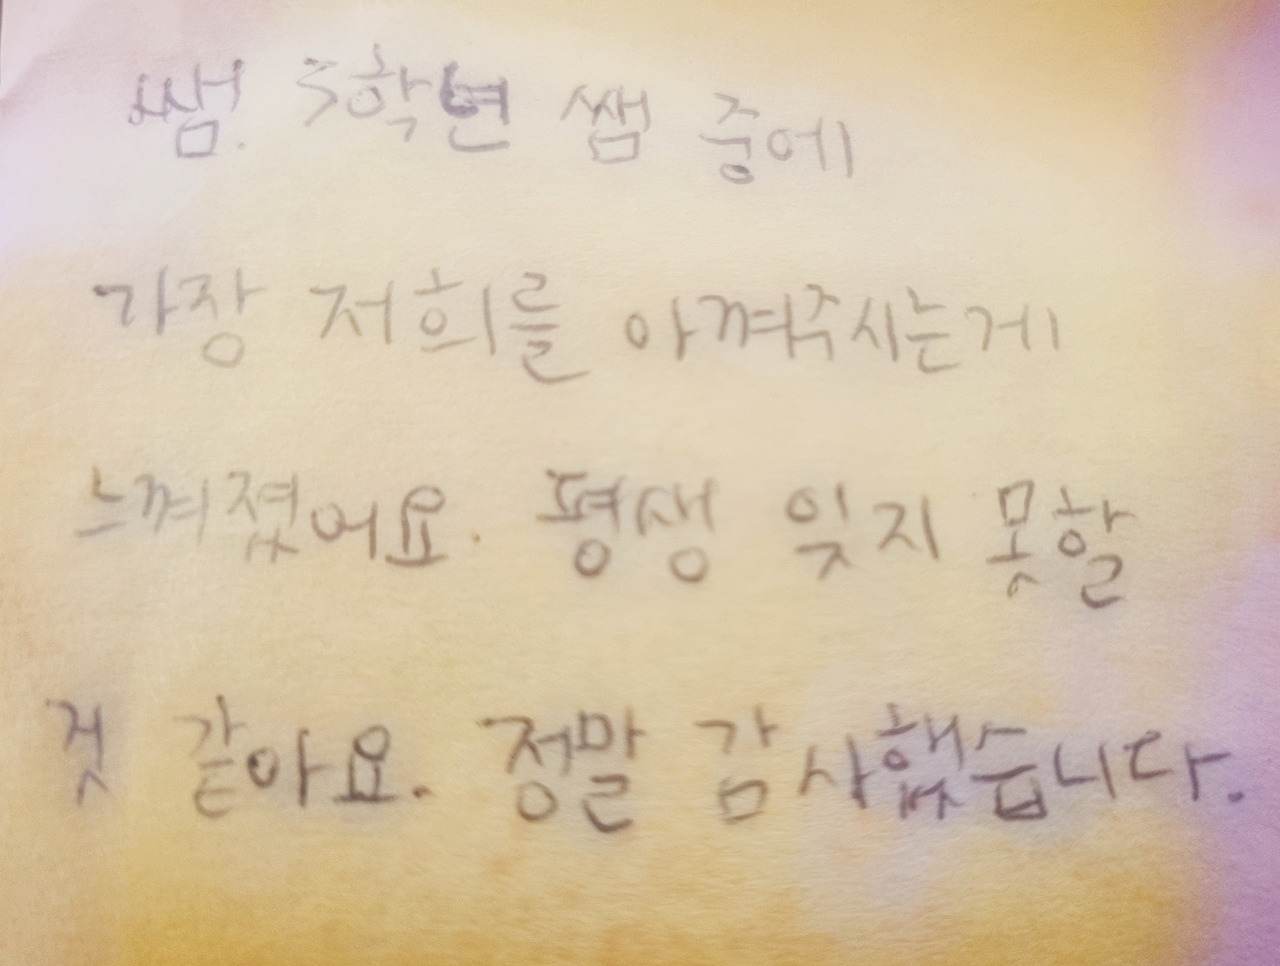 쌤. 3학년 쌤 중에
가장 저희를 아껴주시는게
느껴졌어요. 평생 잊지 못할
것 같아요. 정말 감사했습니다.